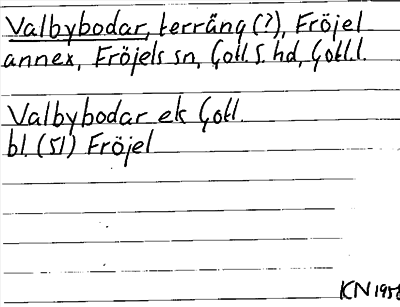 Valbybodar, terräng (?), Fröjel
annex, Fröjels sn, Gotl. S. hd, Gotl. l.
Valbybodar ek Gotl.
bl. (51) Fröjel